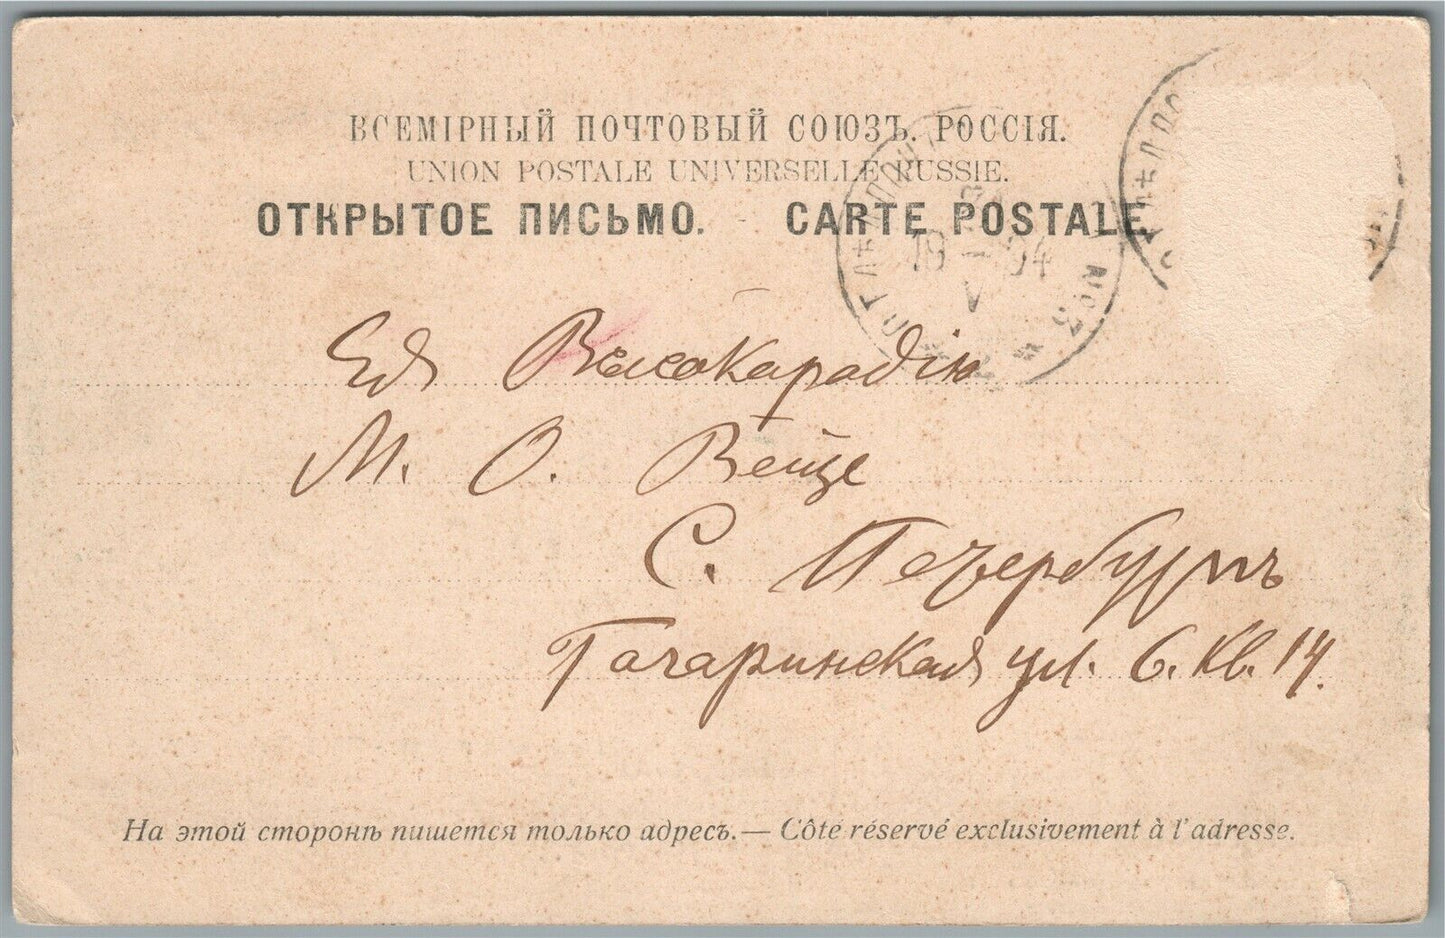 ВСЕМІРНЫЙ ПОЧТОВЫЙ СОЮЗЪ. РОССІЯ.
UNION POSTALE UNIVERSELLE RUSSIE.
ОТКРЫТОЕ ПИСЬМО. - CARTE POSTALE
18 - 04
V
№ 3
Ея Высокородію
М. О. Вейце
С. Петербургъ
Гагаринская ул. 6. кв. 14.
На этой сторонѣ пишется только адресъ. — Côté réservé exclusivement à l'adresse.